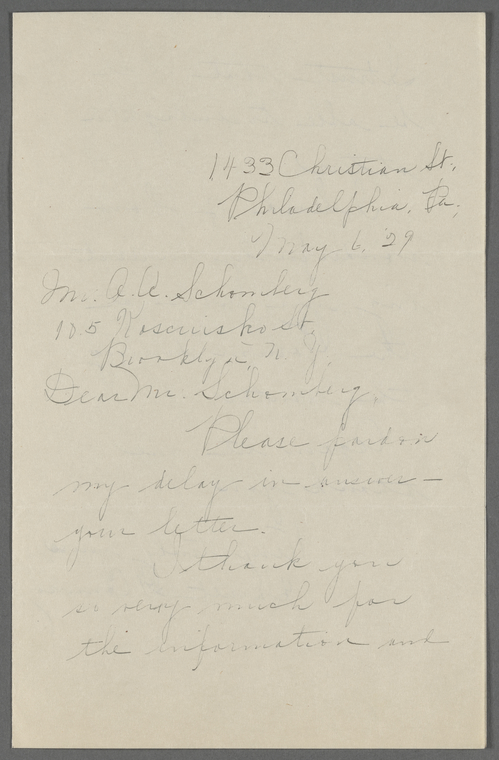 1433 Christian St.,
Philadelphia, Pa.,
May 6, '29
Mr. A. A. Schomberg
105 Kosciusko St,
Brooklyn, N. Y.
Dear Mr. Schomberg,
Please pardon
my delay in answer-
your letter.
I thank you
so very much for
the information and